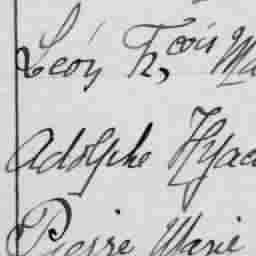 Léon Fr, çois Ma
Adolphe Hyac
Pierre Marie